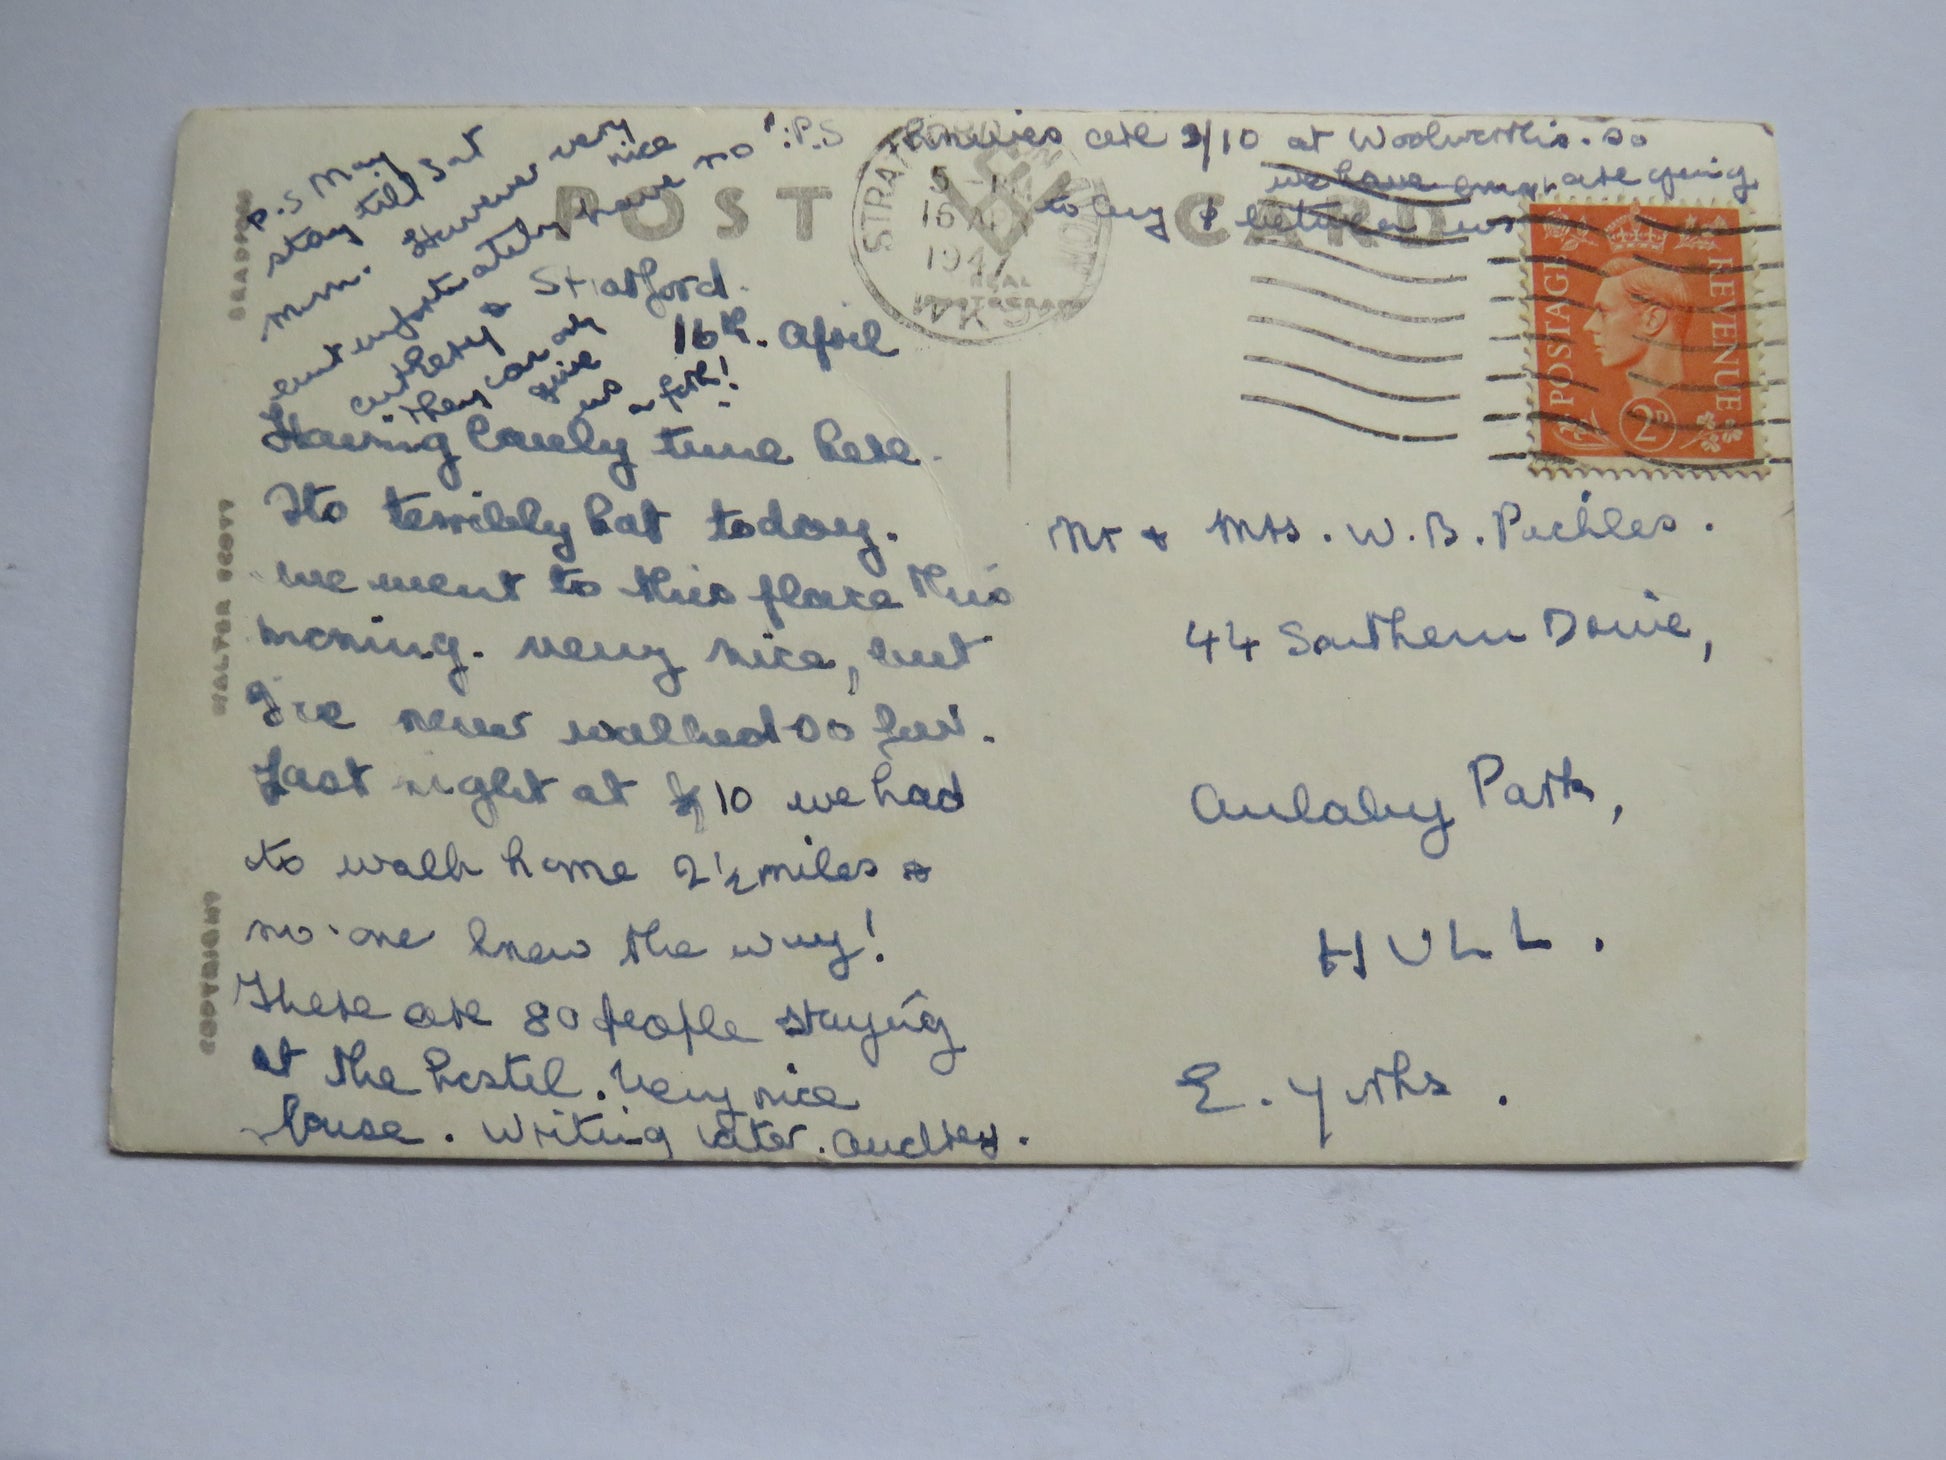 P.S May
stay till Sat
mrn. However very
nice
but unfortunately have no
cutlery &
they can only
give
us a fork!
P.S. are 3/10 at Woolworths. so
we have are going
to buy between us
POST CARD
STRAT
5-
16 AP
1947
REAL
PHOTOGRAPH
POSTAGE REVENUE
2D
Stratford.
16th. April
Having lovely time here.
Its terribly hot today.
we went to this place this
morning. very nice, but
I've never walked so far.
Last night at 10 we had
to walk home 2½ miles &
no-one knew the way!
There are 80 people staying
at the hostel. Very nice
house. Writing later. Audrey.
Mr & Mrs. W. B. Peebles.
44 Southern Drive,
Anlaby Park,
HULL.
E. Yorks.
BRADFORD
WALTER SCOTT
COPYRIGHT